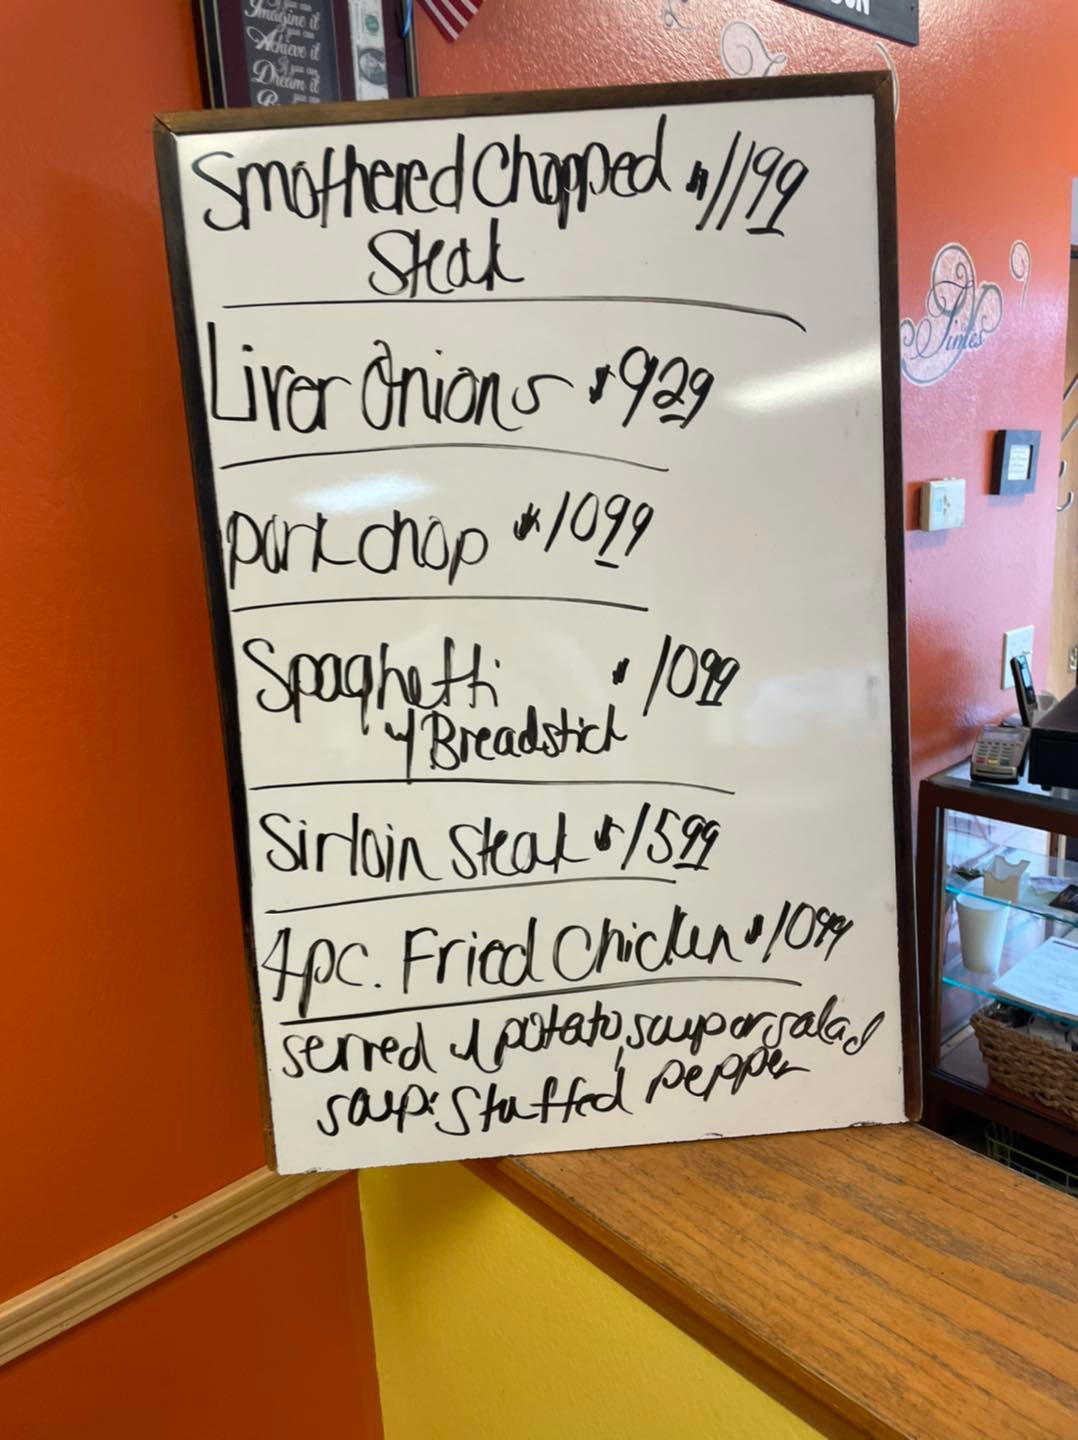 If you can
Imagine it
you can
Achieve it
If you can
Dream it
you can
Smothered Chopped $1199
Steak
Liver Onions $929
pork chop $1099
Spaghetti $1099
w/ Breadstick
Sirloin Steak $1599
4pc. Fried Chicken $1099
served w/ potato, soup or salad
soup: Stuffed pepper
Times